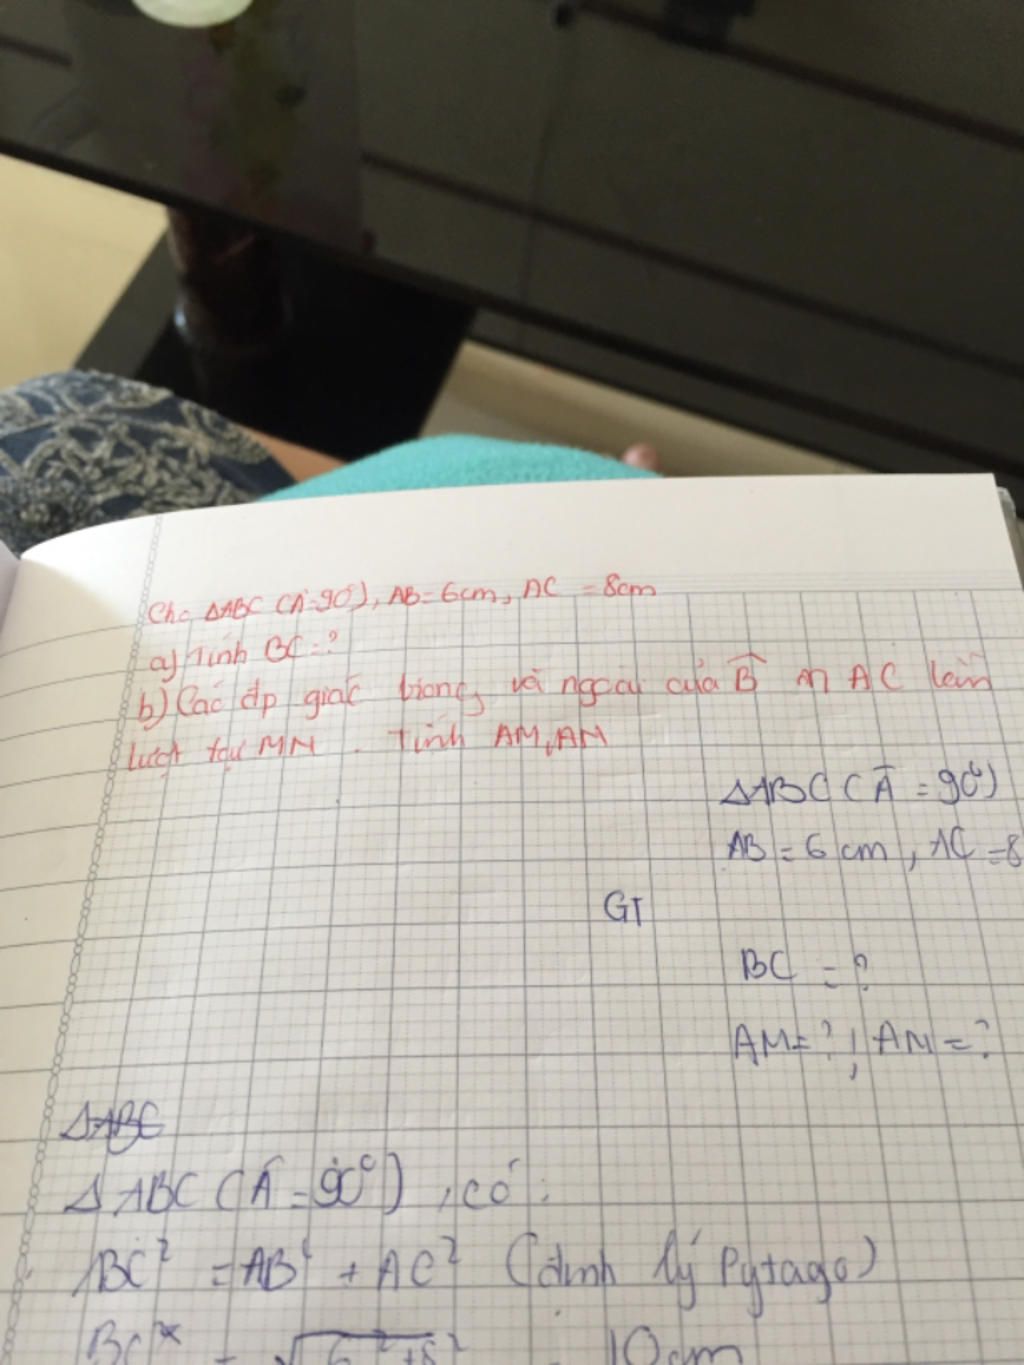 Cho ΔABC (Â=90°), AB=6cm, AC=8cm
a) Tính BC=?
b) Các đp giác trong và ngoài của B̂ ∩ AC lần
lượt tại M,N. Tính AM, AN
ΔABC (Â=90°)
AB=6cm, AC=8
GT
BC=?
AM=?; AN=?
ΔABC
ΔABC (Â=90°), có:
BC² = AB² + AC² (định lý Pytago)
BC = √6²+8² = 10cm